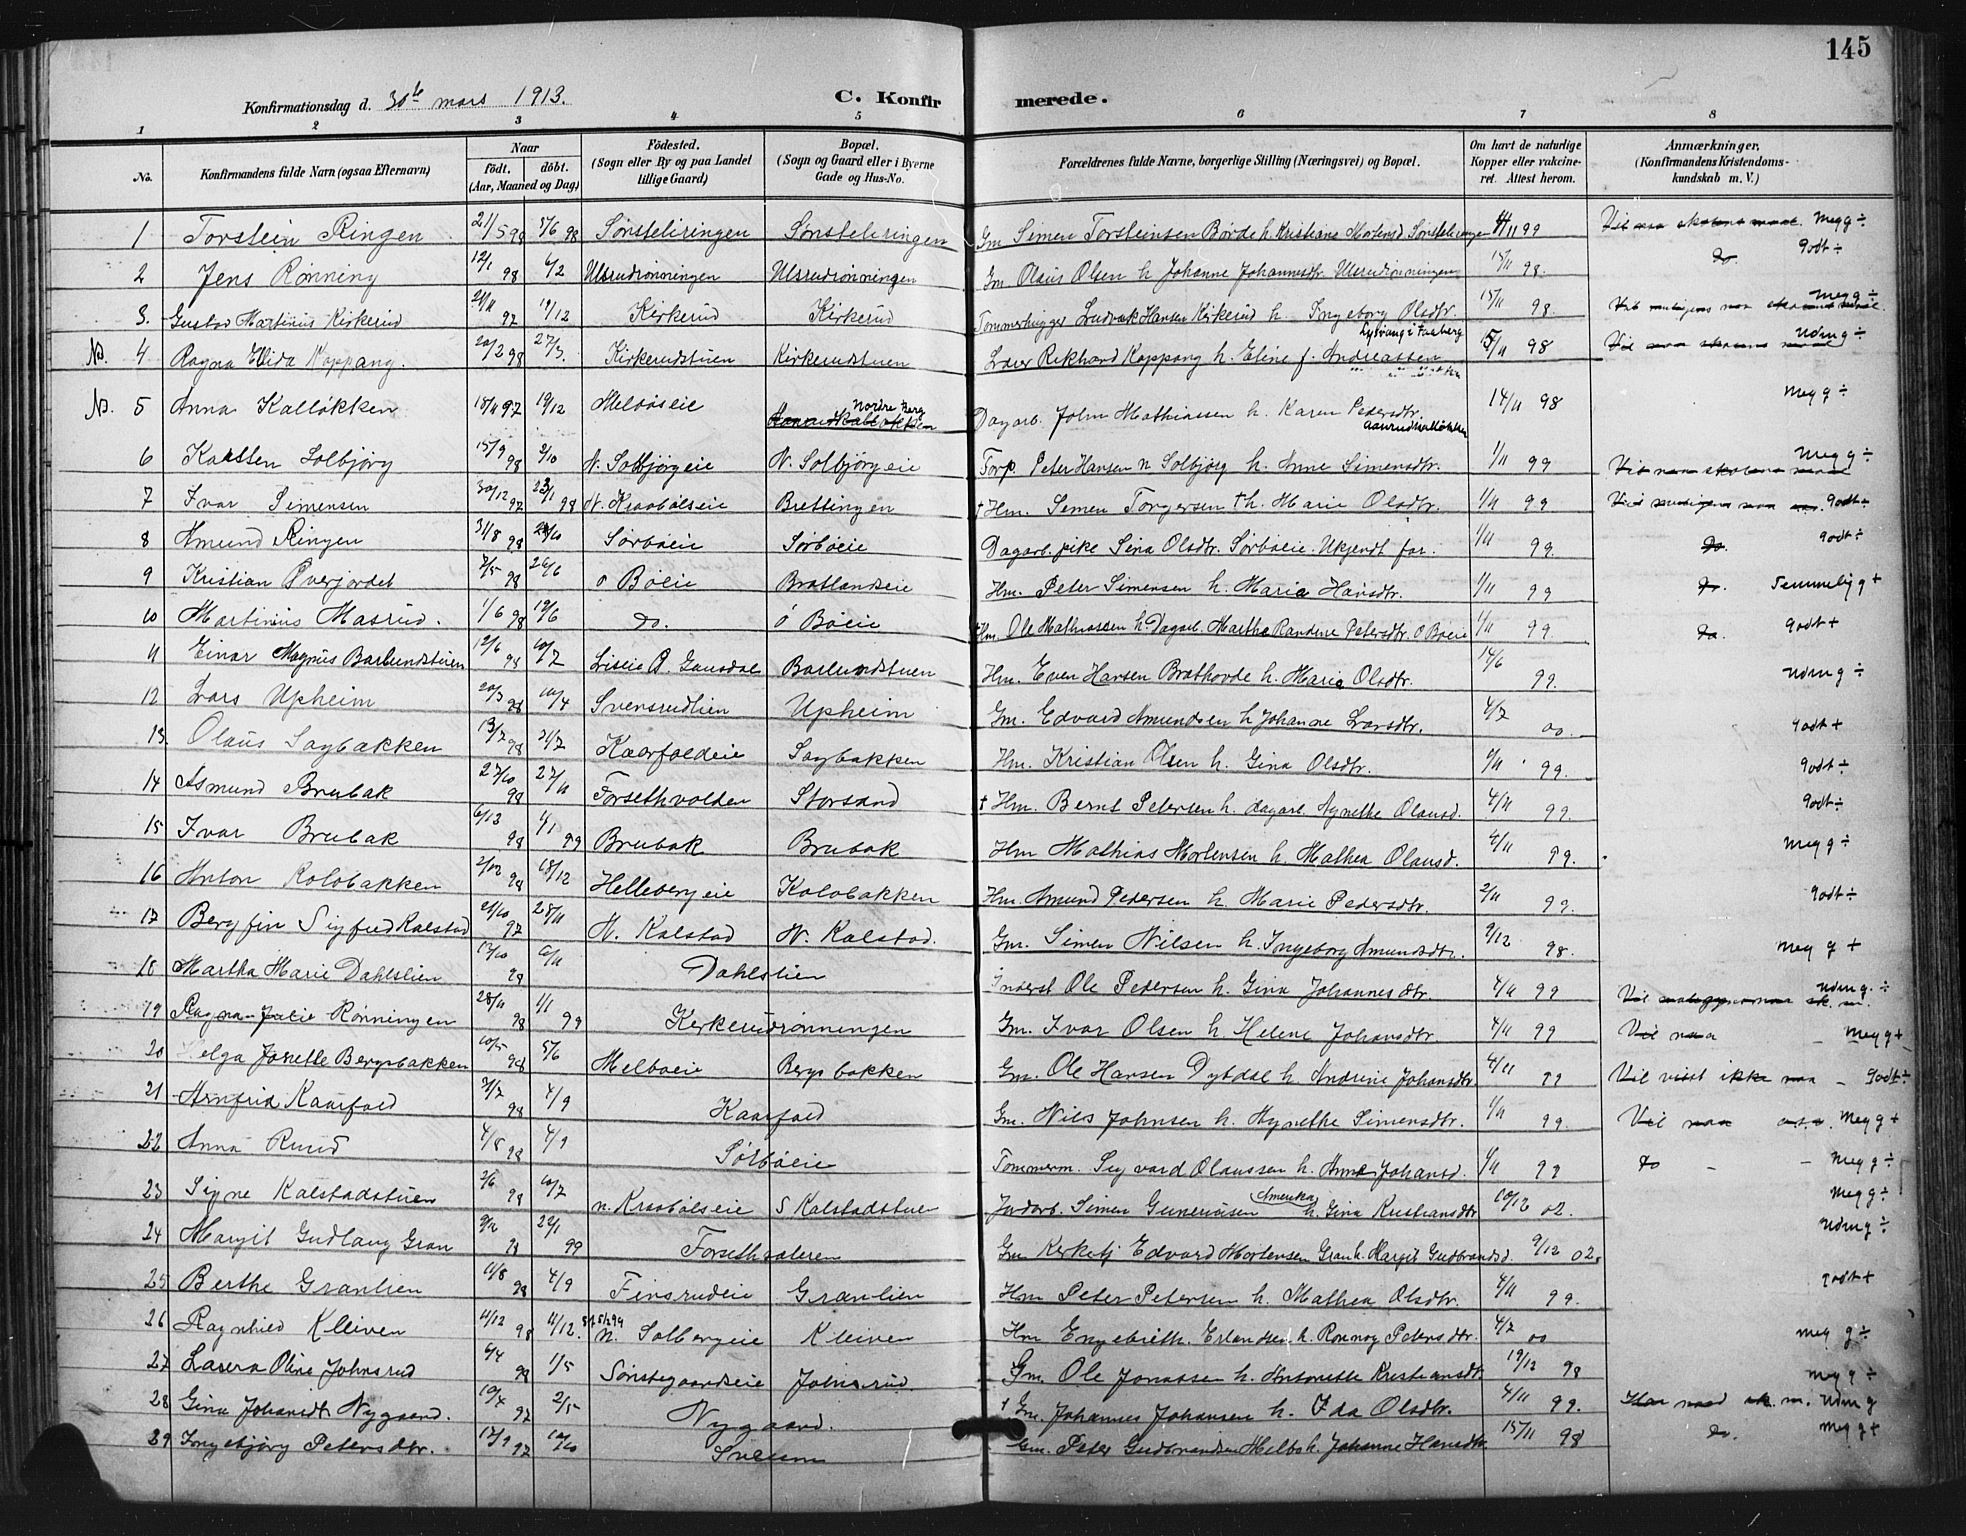 145
Konfirmationsdag d. 30te mars 1913. C. Konfir merede.
1 2 3 4 5 6 7 8
No. Konfirmandens fulde Navn (ogsaa Efternavn) Naar födt. döbt. (Aar, Maaned og Dag) Födested. (Sogn eller By og paa Landet lillige Gaard) Bopæl. (Sogn og Gaard eller i Byerne Gade og Hus-No. Forældrenes fulde Navne, borgerlige Stilling (Næringsvei) og Bopæl. Om havt de naturlige Kopper eller vakcineret. Attest herom. Anmærkninger, (Konfirmandens Kristendomskundskab m. V.)
1 Torstein Ringen 21/5 98 5/6 98 Sønsteliringen Sønsteliringen Gm Simen Torsteinsen Børde h. Kristiane Mortensd Sønsteliringen 11 99 Meg g ÷
2 Jens Rønning 12/1 98 6/2 Ulsrudrønningen Ulsrudrønningen Gm. Olaus Olsen h Johanne Johannesdtr. Ulsrudrønningen 15/11 98. Do Godt ÷
3. Gustav Martinius Kirkerud 21/11 97 19/12 Kirkerud Kirkerud Tømmerhugger Ludvik Hansen Kirkerud h. Ingeborg Olsdtr. 15/11 98. Meg g ÷
NB. 4 Ragna Elida Koppang. 20/2 98 27/3. Kirkerudstuen Kirkerudstuen Lærer Rikhard Koppang h. Eline f. Andreassen Lysvang i Faaberg 5/11 98 Udm g ÷
NB. 5 Anna Kalløkken 18/11 97 19/12 Melbøseie Nordre Berg Dagarb. John Mathiassen h. Karen Pedersdtr. Aanrudkalløkken 14/11 98 Meg g ÷
6 Karsten Solbjørg 15/9 98 2/10 N. Solbjørgeie N. Solbjørgeie Forp. Peter Hansen n Solbjørg h. Anne Simensdtr. 1/11 99 Meg g ÷
7 Ivar Simensen 30/12 97 23/1 98 N. Kraabølseie Brettingen † Hm. Simen Torgersen † h. Marie Olsdtr. 1/11 99 Godt ÷
8 Amund Ringen 31/8 98 Sørbøeie Sørbøeie Dagarb. pike Sina Olsdtr. Sørbøeie. Ukjendt far. 1/11 99. Do. Godt ÷
9 Kristian Øverjordet 7/5 98 26/6 ø Bøeie Bratlandseie Hm. Peter Simensen h. Maria Hansdtr. 1/11 99 Do. Temmelig g +
10 Martinius Masrud. 1/6 98 19/6 Do. ø Bøeie † Hm. Ole Mathiassen h. Dagarb. Marthe Randine Petersdtr. Ø Bøeie 1/11 99. Do. Godt +
11 Einar Magnus Barlundstuen 12/6 98 10/7 Liseie Ø. Gausdal Barlundstuen Hm. Even Hansen Brathovde h. Marie Olsdtr. 14/6 99. Udm g ÷
12 Lars Upheim 20/3 98 10/4 Svensrudlien Upheim Gm. Edvard Amundsen h Johanne Larsdtr. 4/7 00. Godt +
13 Olaus Sagbakken 13/7 98 Kaarfaldeie Sagbakken Hm. Kristian Olsen h. Gina Olsdtr. 4/11 99. Godt ÷
14 Asmund Brubak 27/10 98 27/11 Forsethvolden Storsand † Hm. Bernt Petersen h. dagarb. Agnethe Olausd. 4/11 99. Godt ÷
15 Ivar Brubak 6/12 98 1/1 99 Brubak Brubak Hm Mathias Mortensen h. Mathea Olausd. 4/11 99. Meg g ÷
16 Anton Kolobakken 2/12 98 18/12 Hellebergeie Kolobakken Hm. Amund Pedersen h. Marie Pedersdtr. 2/11 99. Godt ÷
17 Bergfin Sigfred Kalstad 21/10 97 28/11 N. Kalstad N. Kalstad. Gm. Simen Nilsen h. Ingeborg Amundsdtr. 9/12 98. Meg g +
18 Martha Marie Dahlslien 13/10 98 6/11 Dahlslien Inderst Ole Pedersen h. Gina Johannesdtr. 4/11 99 Udm g. ÷
19 Ragna Julie Rønningen 28/11 98 1/1 99 Kirkerudrønningen Gm. Ivar Olsen h. Helene Johansdtr. 4/11 99 Vil naa Meg g +
20 Helga Jonette Bergsbakken 10/5 98 5/6 Melbøeie Bergsbakken Gm. Ole Hansen Dybdal h Andrine Johansdtr 4/11 99 Vil visst ikke naa – Godt ÷
21 Arnfrid Kaarfald 3/7 98 4/9 Kaarfald Gm. Nils Johnsen h. Agnethe Simensdtr. 1/11 99. Vil naa Meg g +
22 Anna Ruud 4/8 98 4/9 Sørbøeie Tømmerm. Sigvard Olaussen h. Anne Johansd. 4/11 99 Do – – Meg g ÷
23 Signe Kalstadstuen 2/6 98 10/7 n. Kraabølseie S Kalstadstuen Jordarb. Simen Guneriusen Amerika h. Gina Kristiansdtr 10/12 02. Meg g ÷
24 Margit Gudlaug Gran 9/12 98 22/1 99 Forsethsæteren Gm Kirketj Edvard Mortensen Gran h. Margit Gudbrandsd. 9/12 02. Udm g ÷
25 Berthe Granlien 11/8 98 4/9 Finsrudeie Granlien Hm Peter Petersen h. Mathea Olsdtr. 4/11 99. Godt +
26 Ragnhild Kleiven 11/12 98 11/12. n. Solbergeie Kleiven Hm Engebreth. Erlandsen h. Rønnog Petersdtr. 4/7 00 Meg g ÷
27 Lasera Oline Johnsrud 6/4 98 1/5 Sønstegaardseie Johnsrud. Gm. Ole Jonassen h. Antonette Kristiansdtr. 19/12 98 Meg g ÷
28 Gina Johansdtr. Nygaard. 10/4 97 2/5 Nygaard. † Gm. Johannes Johansen h. Ida Olsdtr. 4/11 99. Udm g
29 Ingebjørg Petersdtr. 12/9 97 10/10 Sveum Gm. Peter Gudbrandsen Melbø h. Johanne Hansdtr. 15/11 98 Do. Meg g +